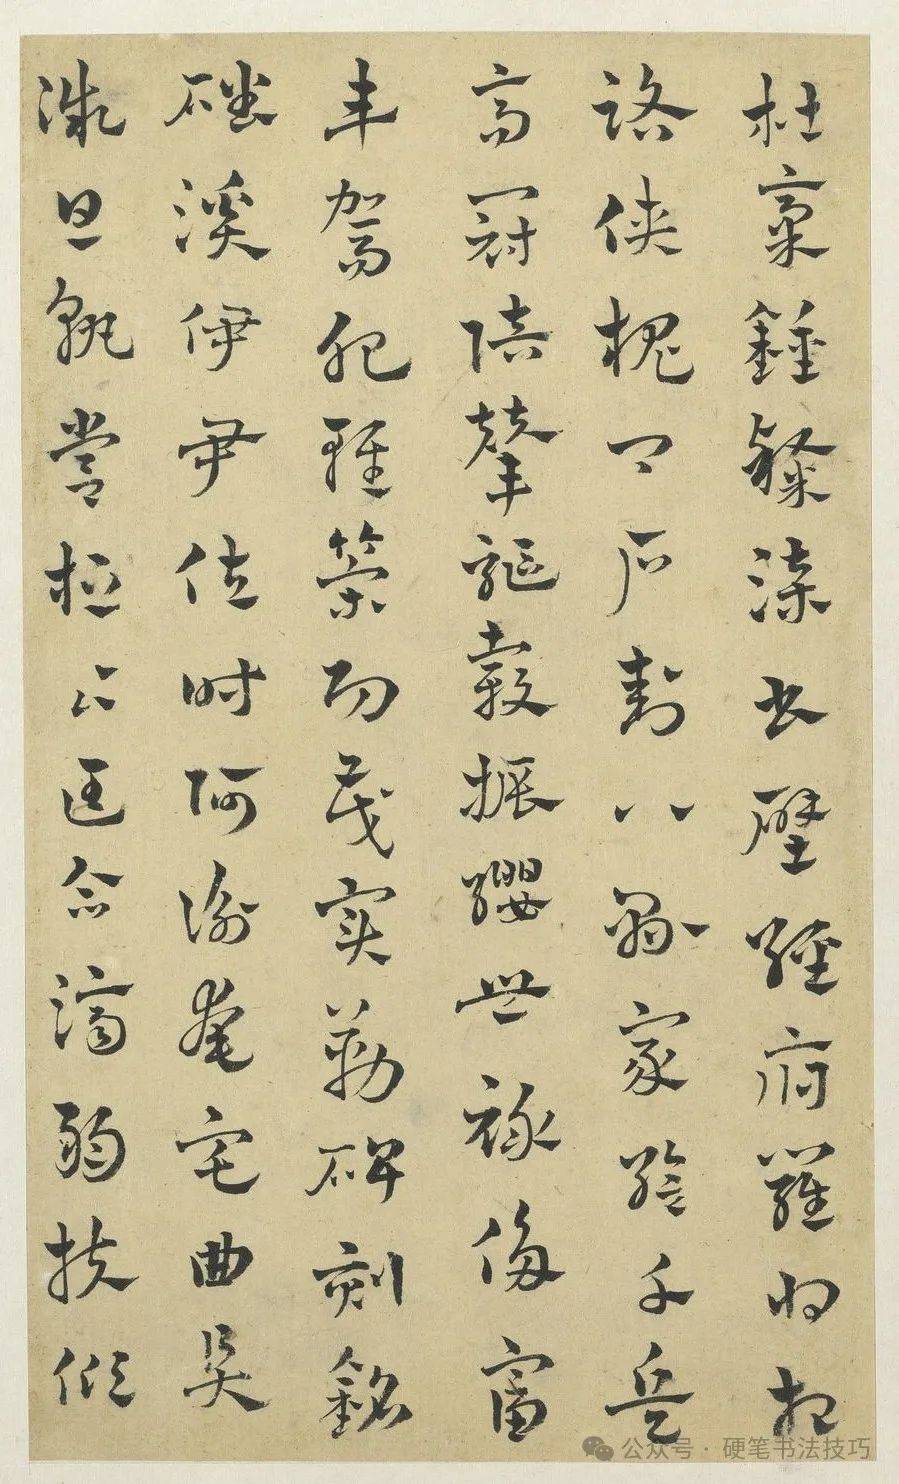 杜稾鍾隸漆書壁經府羅將相
路俠槐卿戶封八縣家給千兵
高冠陪輦驅轂振纓世祿侈富
車駕肥輕策功茂實勒碑刻銘
磻溪伊尹佐時阿衡奄宅曲阜
微旦孰營桓公匡合濟弱扶傾
公众号 · 硬笔书法技巧